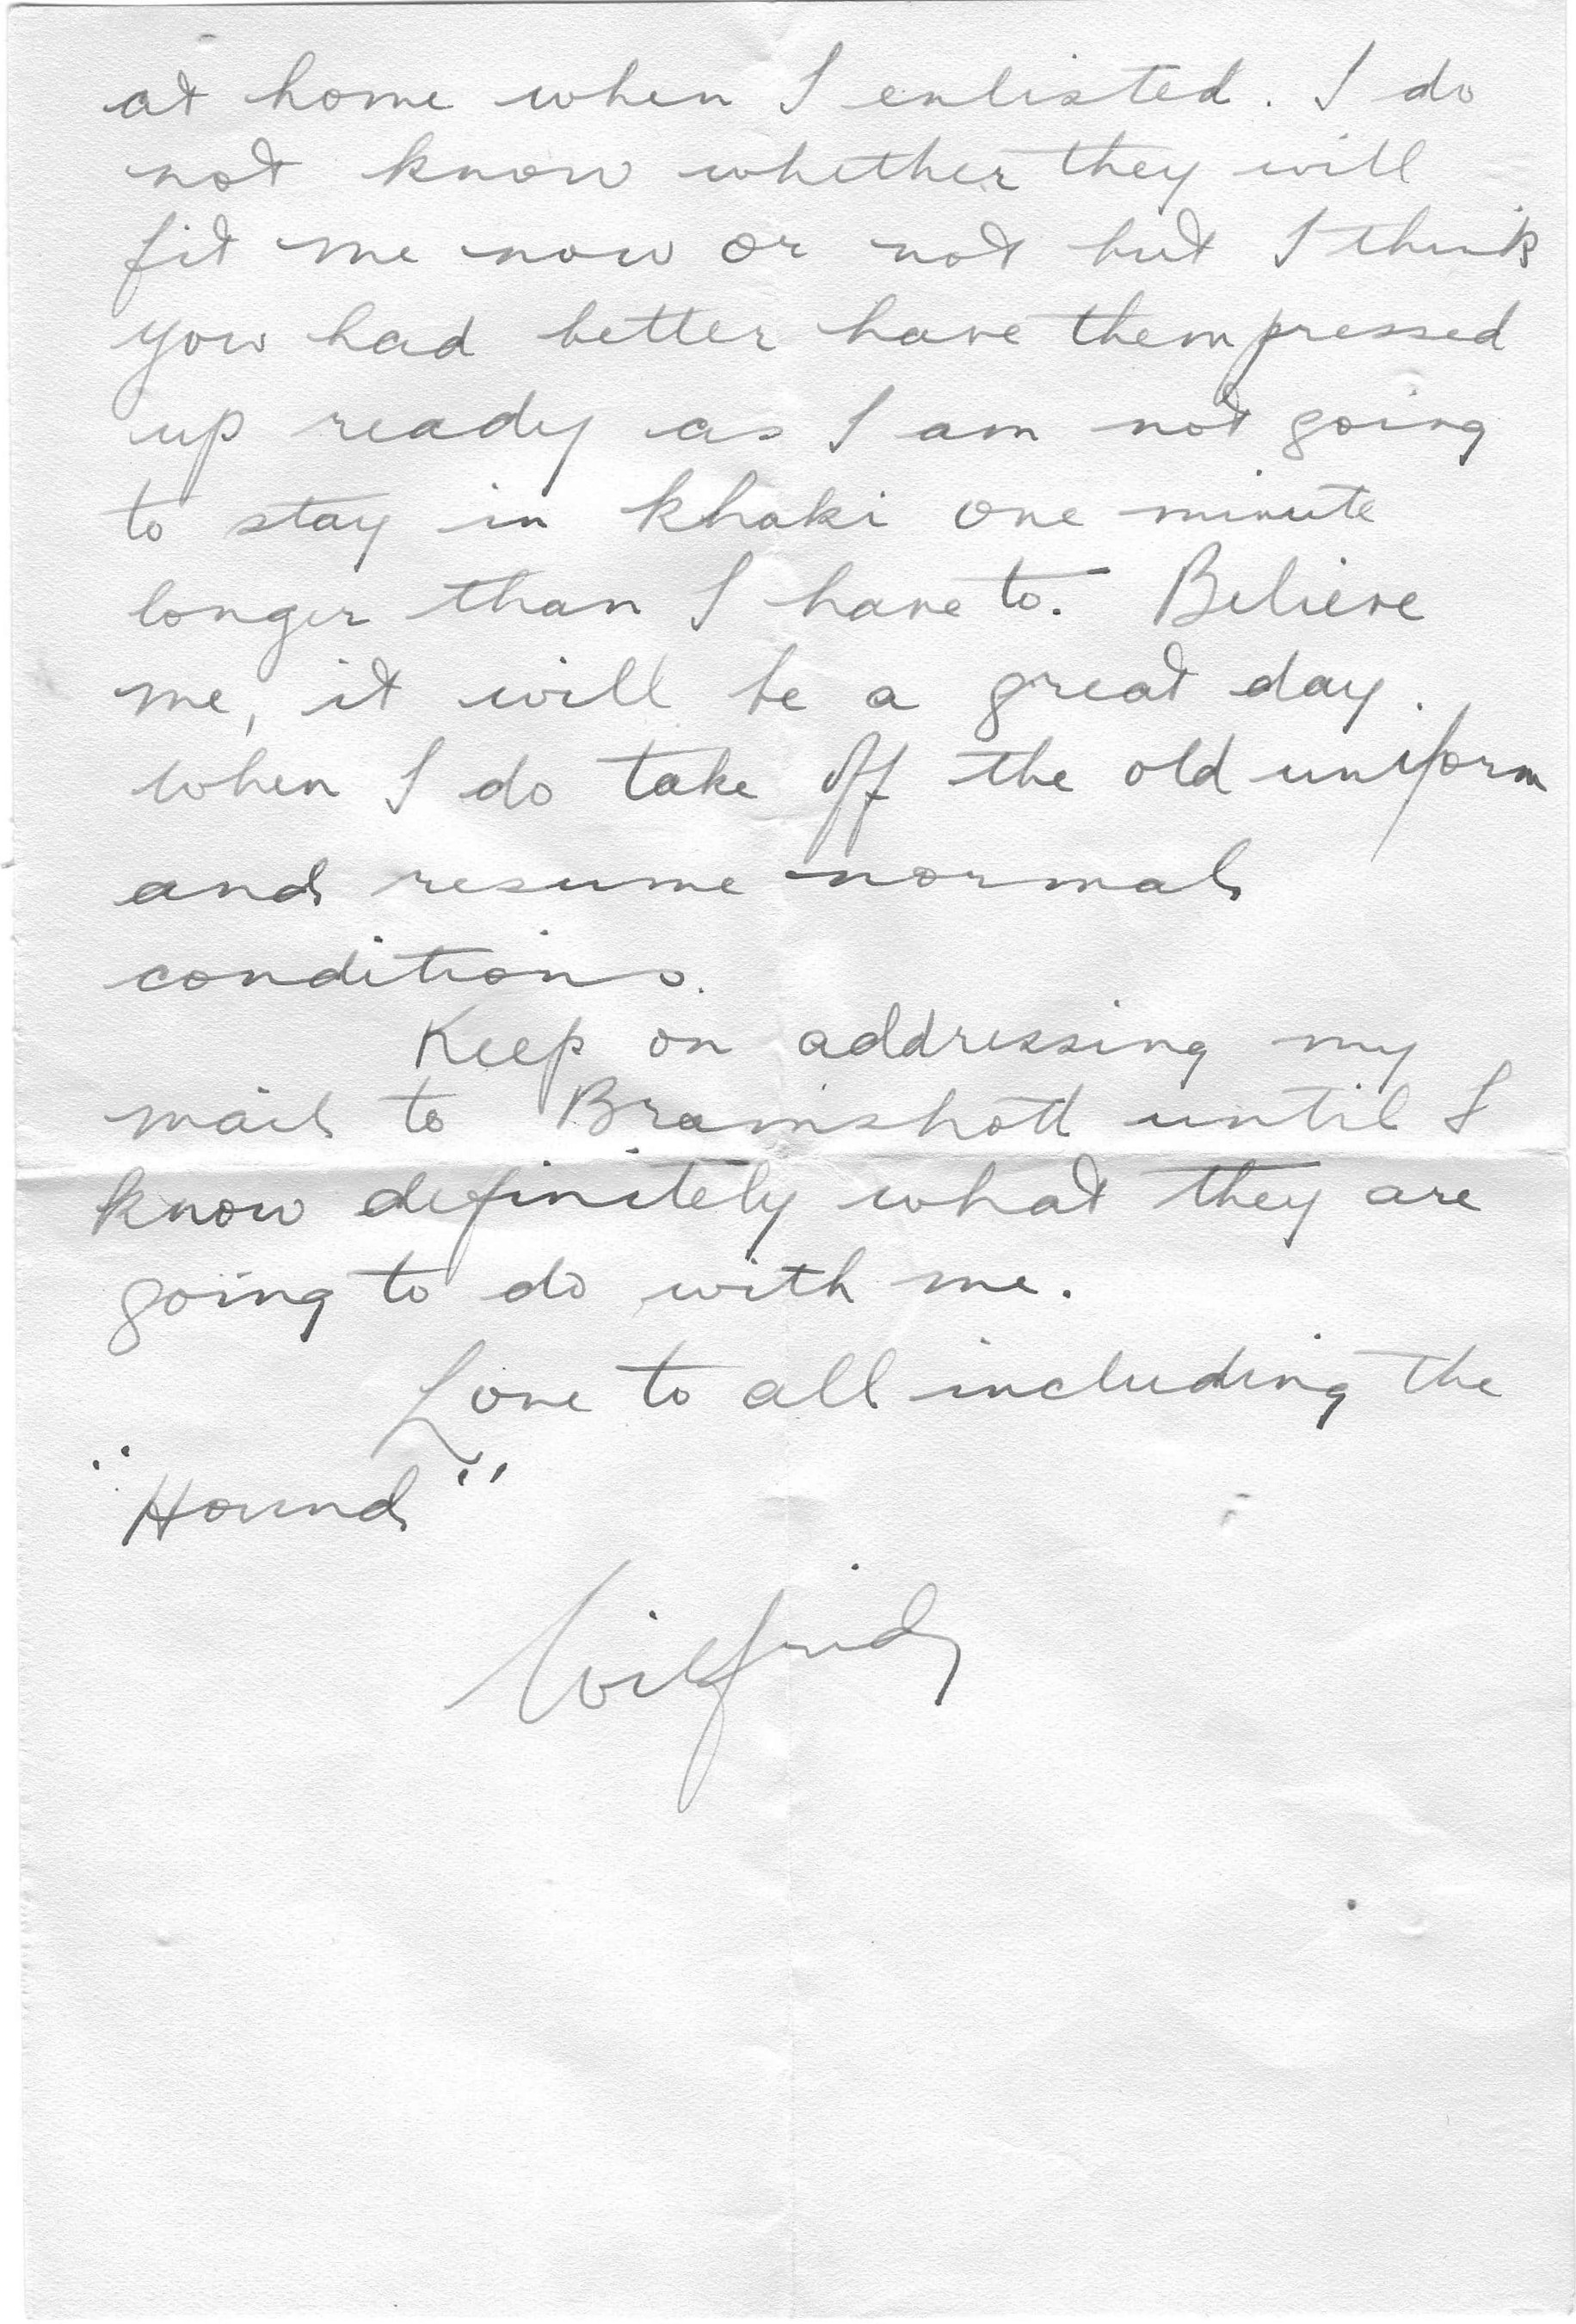 at home when I enlisted. I do
not know whether they will
fit me now or not but I think
you had better have them pressed
up ready as I am not going
to stay in khaki one minute
longer than I have to. Believe
me, it will be a great day.
when I do take off the old uniform
and resume normal
conditions.
Keep on addressing my
mail to Bramshott until I
know definitely what they are
going to do with me.
Love to all including the
"Hound"
Wilfrid